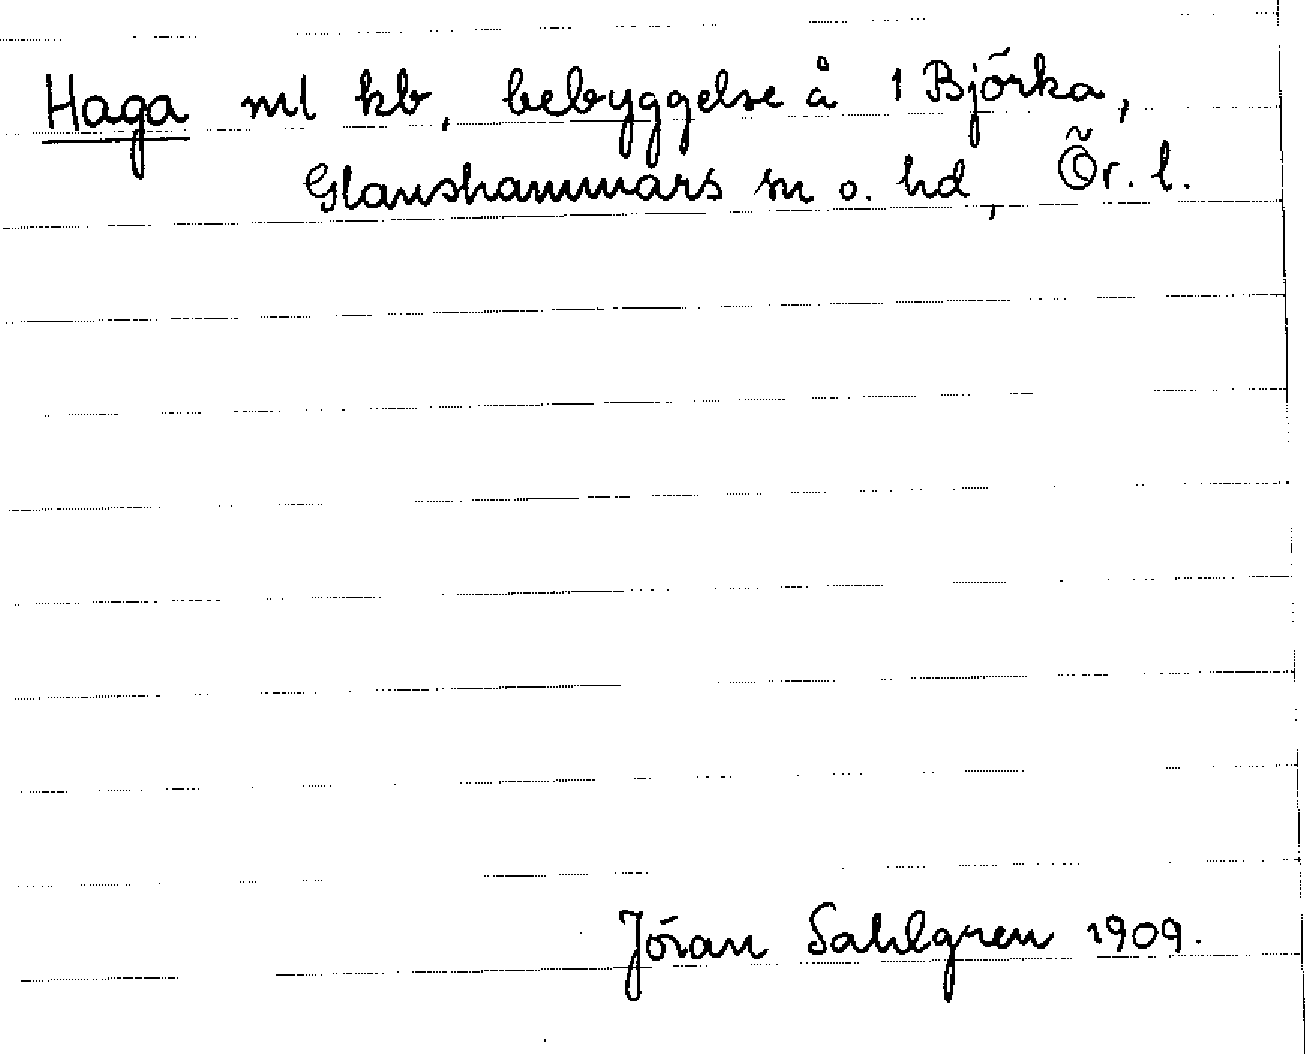 Haga ml kb, bebyggelse å 1 Björka,
Glanshammars sn o. hd, Ör. l.
Jöran Sahlgren 1909.